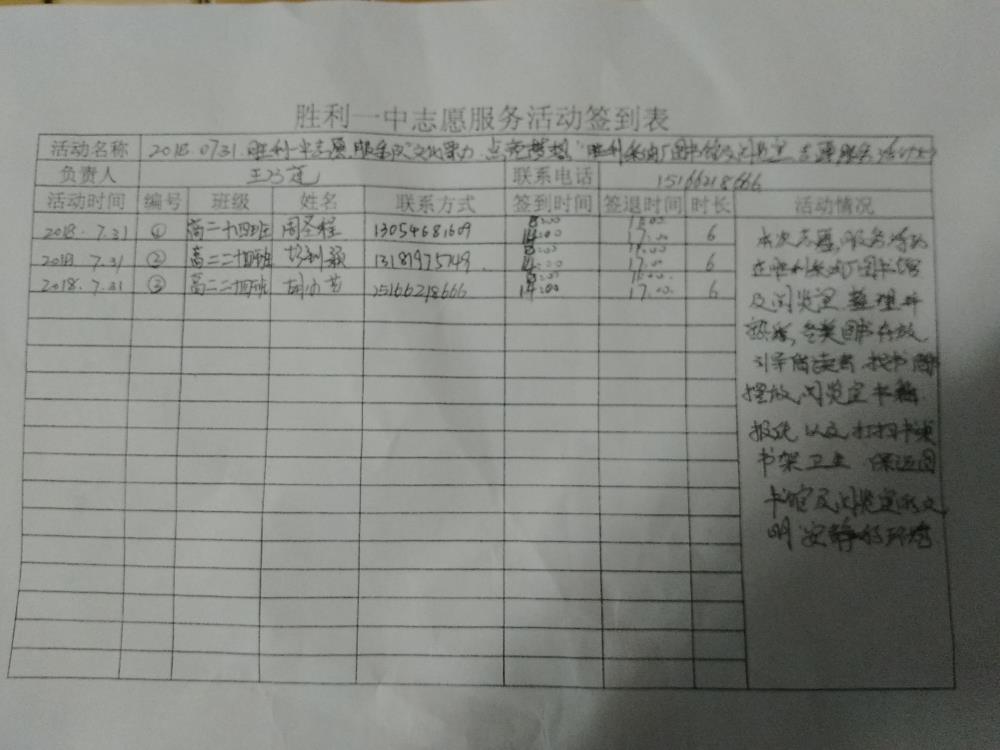 胜利一中志愿服务活动签到表
活动名称 2018.0731.胜利一中志愿服务队"文化聚力 点亮梦想"胜利采油厂图书馆及阅览室志愿服务活动
负责人 联系电话 15166218666
活动时间 编号 班级 姓名 联系方式 签到时间 签退时间 时长 活动情况
2018.7.31 ① 高二十四班 周圣程 13054681609 8:00 14:00 17:00 6
2018.7.31 ② 高二二十四班 13181975749 14:00 17:00 6
2018.7.31 ③ 高二二十四班 15166218666 14:00 17:00 6
本次志愿服务活动
在胜利采油厂图书馆
及阅览室 整理并
各类图书存放,
引导读者 找书
摆放阅览室书籍
报纸 以及打扫书桌
书架卫生 保证图
书馆及阅览室的文
明安静的环境